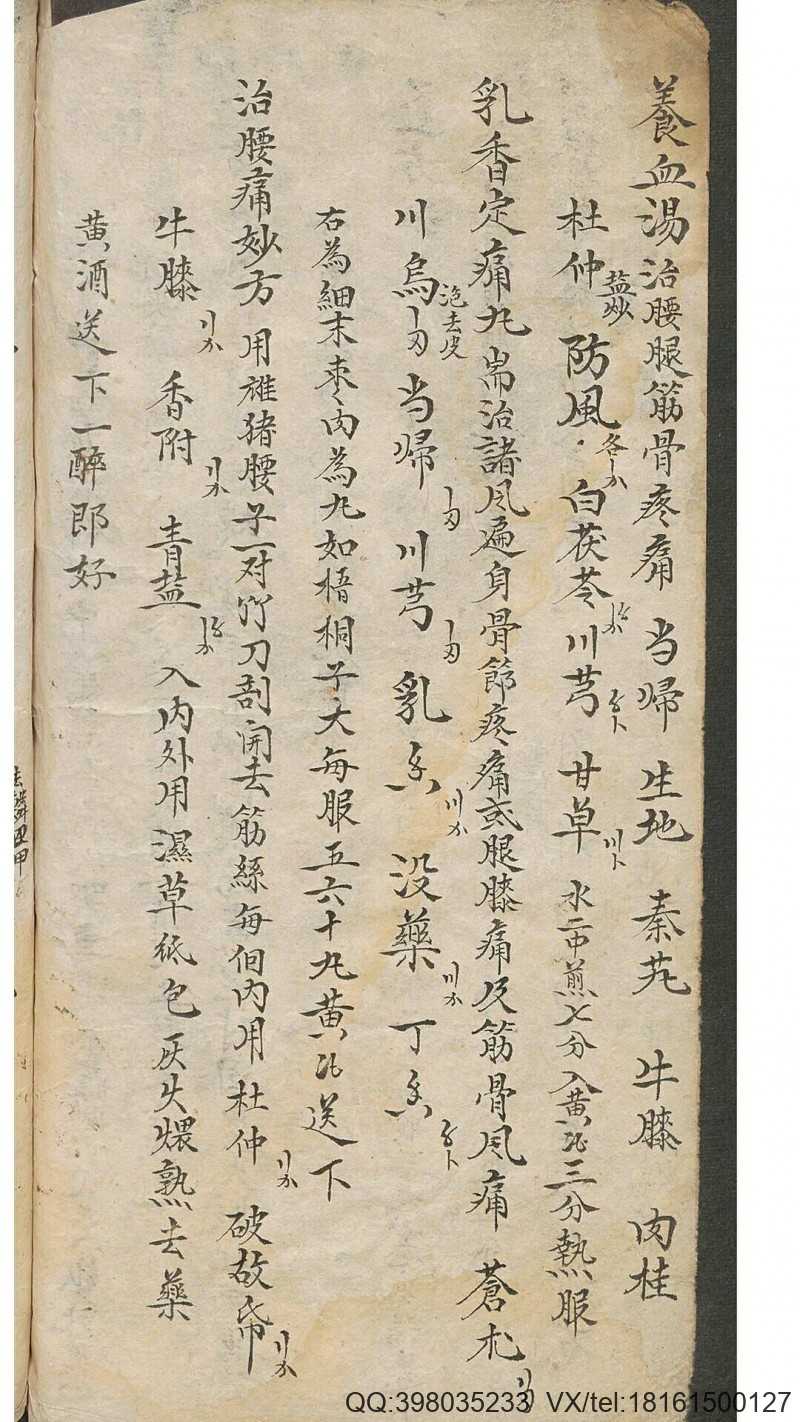 養血湯治腰腿筋骨疼痛 当歸 生地 秦艽 牛膝 肉桂
杜仲 盐炒 防風 各 白茯苓 川芎 甘草 水二中煎七分入黄酒三分熱服
乳香定痛丸 耑治諸风遍身骨節疼痛或腿膝痛及筋骨风痛 蒼朮
川烏 泡去皮 当歸 川芎 乳香 没藥 丁香
右為細末枣肉為丸如梧桐子大每服五六十丸黄酒送下
治腰痛妙方 用雄猪腰子一对竹刀剖開去筋絲每個内用杜仲 破故帋
牛膝 香附 青盐 入内外用濕草纸包灰火煨熟去藥
黄酒送下一醉即好
QQ:398035233 VX/tel:18161500127